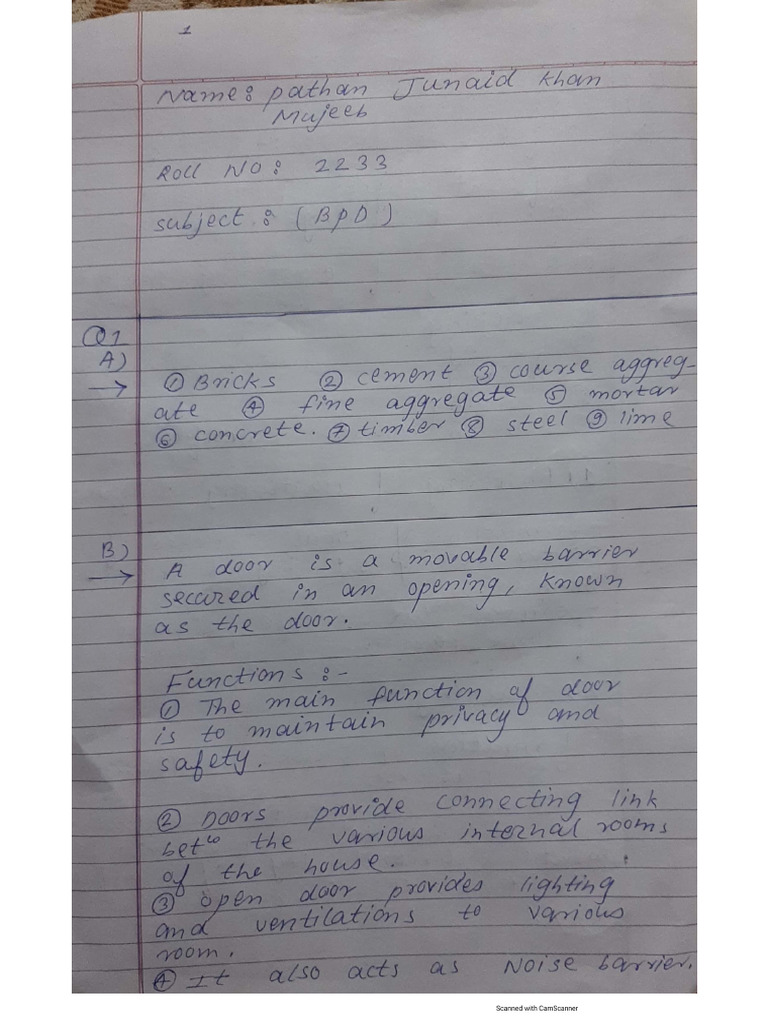 1
Name: pathan Junaid Khan
Mujeeb
Roll NO: 2233
subject: (BPD)
Q1
A)
→ ① Bricks ② cement ③ course aggreg-
ate ④ fine aggregate ⑤ mortar
⑥ concrete. ⑦ timber ⑧ steel ⑨ lime
B)
→ A door is a movable barrier
secured in an opening, known
as the door.
Functions :-
① The main function of door
is to maintain privacy and
safety.
② Doors provide connecting link
betⁿ the various internal rooms
of the house.
③ open door provides lighting
and ventilations to various
room.
④ It also acts as Noise barrier.
Scanned with CamScanner